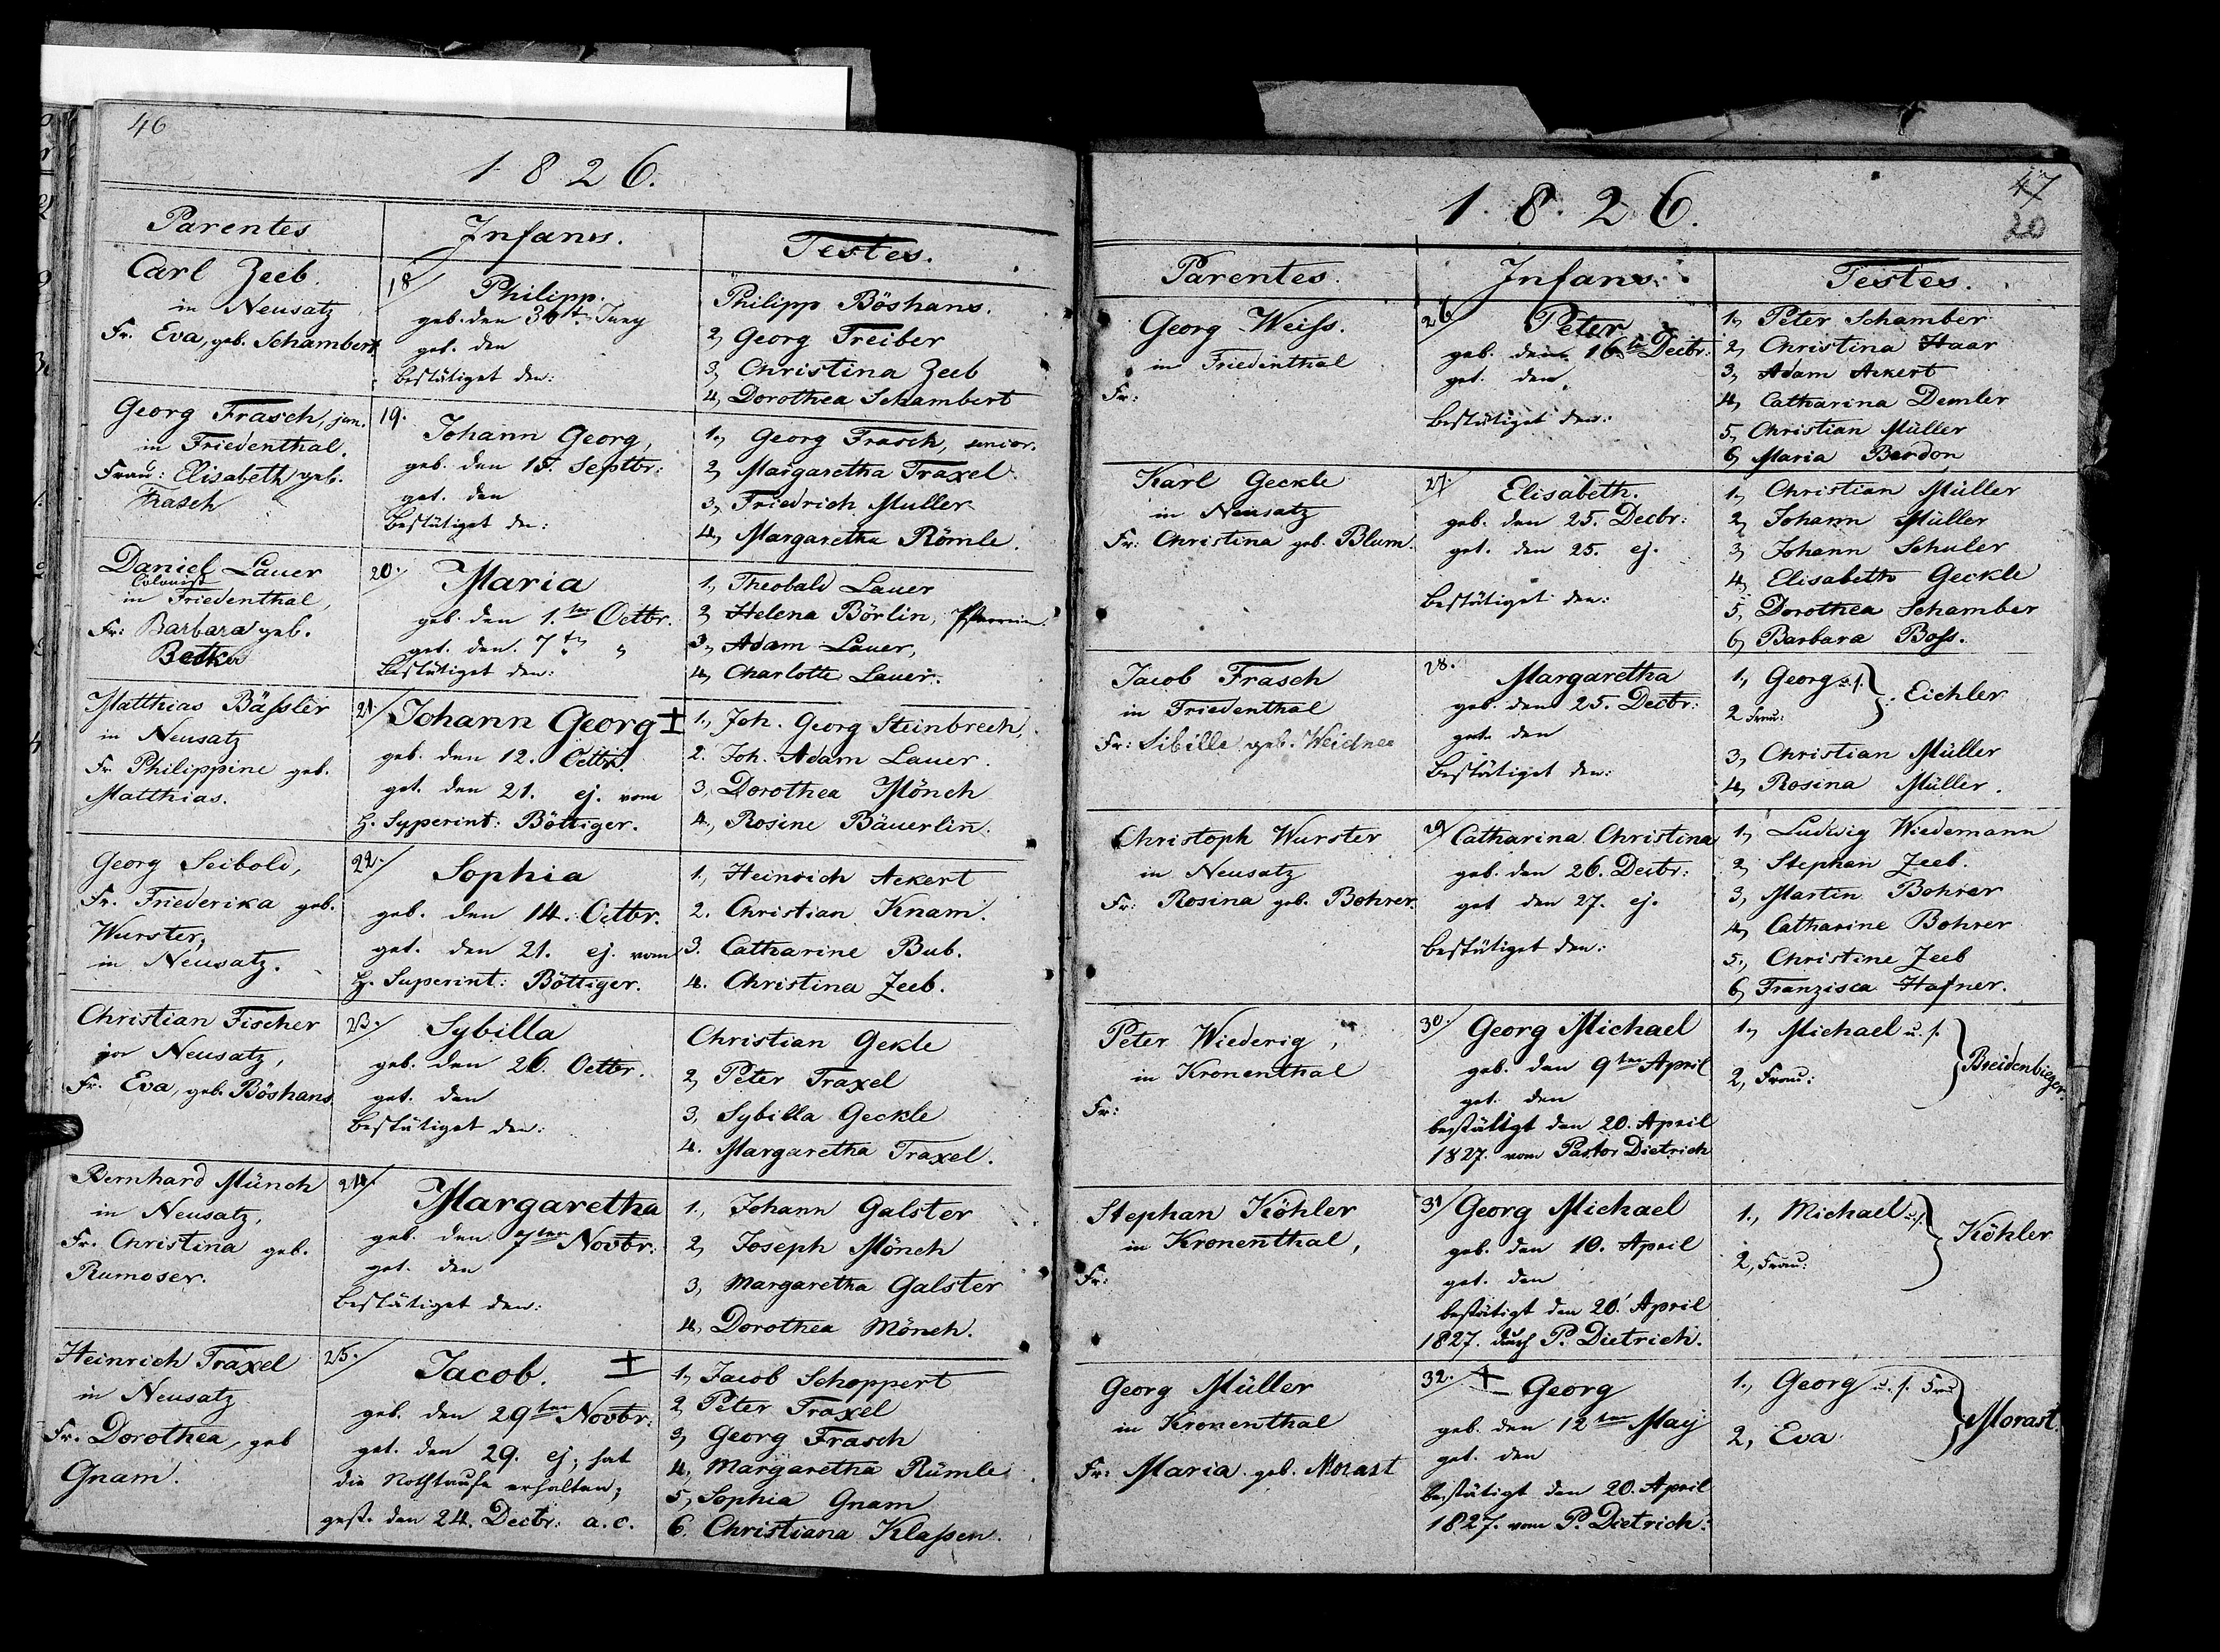 46
1826.
Parentes
Infans.
Testes.
Carl Zeeb.
in Neusatz
Fr. Eva, geb. Schambert
18/ Philipp.
geb. den 30st. Juny
get. den
bestätiget den:
Philipp Böshans.
2, Georg Treiber
3, Christina Zeeb
4, Dorothea Schambert
Georg Frasch, jun.
in Friedenthal.
Frau: Elisabeth geb.
Frasch
19. Johann Georg,
geb. den 15. Septbr:
get. den
bestätiget den:
1., Georg Frasch, senior.
2, Margaretha Traxel
3, Friedrich Muller
4, Margaretha Römle.
Daniel Lauer
Colonist
in Friedenthal,
Fr: Barbara geb.
Betker
20. Maria
geb. den 1.ten Octbr.
get. den. 7tn "
bestätiget den:
1., Theobald Lauer
2, Helena Börlin, Pfarrerin.
3., Adam Lauer,
4, Charlotte Lauer.
Matthias Bäßler
in Neusatz
Fr. Philippine geb.
Matthias.
21/ Johann Georg ±
geb. den 12. Octbr.
get. den 21. ej. vom
H. Syperint: Böttiger.
1., Joh. Georg Steinbrech,
2. Joh. Adam Lauer.
3, Dorothea Mönch
4., Rosine Bäuerlin.
Georg Seibold,
Fr. Friederika geb.
Wurster,
in Neusatz.
22./ Sophia
geb. den 14. Octbr.
get. den 21. ej. vom
H. Superint: Böttiger.
1., Heinrich Ackert
2. Christian Knam.
3. Catharine Bub.
4. Christina Zeeb.
Christian Fischer
in Neusatz,
Fr. Eva, geb. Böshans
23./ Sybilla
geb. den 26. Octbr.
get. den
bestätiget den:
Christian Gekle
2, Peter Traxel
3, Sybilla Geckle
4. Margaretha Traxel.
Bernhard Münch
in Neusatz,
Fr. Christina geb.
Rumoser.
24/. Margaretha
geb. den 7ten Novbr:
get. den
bestätiget den:
1., Johann Galster
2, Joseph Mönch
3, Margaretha Galster
4, Dorothea Mönch.
Heinrich Traxel
in Neusatz
Fr. Dorothea, geb
Gnam.
25./ Jacob. ±
geb. den 29ten Novbr:
get. den 29. ej; hat
die Nothtaufe erhalten;
gest. den 24. Decbr: a.c.
1, Jacob Schoppert
2, Peter Traxel
3, Georg Frasch
4., Margaretha Rümle
5, Sophia Gnam
6. Christiana Klaßen.
47
20
1.8.26.
Parentes.
Infans.
Testes.
Georg Weiss.
in Friedenthal
Fr:
26/ Peter
geb. den 16tn Decbr:
get. den,
bestätiget den:
1., Peter Schamber
2, Christina Haar
3, Adam Ackert
4, Catharina Demler
5, Christian Müller
6, Maria Bardon
Karl Geckle
in Neusatz
Fr: Christina geb. Blum.
27. Elisabeth.
geb. den 25. Decbr:
get. den 25. ej.
bestätiget den:
1, Christian Müller
2, Johann Müller
3, Johann Schuler
4, Elisabeth Geckle
5, Dorothea Schamber
6, Barbara Boss.
Jacob Frasch
in Friedenthal
Fr: Sibille geb. Weidner
28. Margaretha
geb. den 25. Decbr:
get. den
bestätiget den:
1., Georg u. s. } Eichler
2 Frau:
3, Christian Müller
4, Rosina Müller.
Christoph Wurster
in Neusatz
Fr: Rosina geb. Bohrer.
29/ Catharina Christina
geb. den 26. Decbr:
get den 27. ej.
bestätiget den:
1, Ludwig Wiedemann
2, Stephan Zeeb.
3, Martin Bohrer
4, Catharine Bohrer
5., Christine Zeeb
6, Franzisca Hafner.
Peter Wiederig,
in Kronenthal
Fr:
30./ Georg Michael
geb. den 9ten April
get. den
bestättigt den 20. April
1827. vom Pastor Dietrich
1., Michael u. s. } Breidenbieger.
2, Frau:
Stephan Köhler
in Kronenthal,
Fr:
31/ Georg Michael
geb. den 10. April
get. den
bestätigt den 20. April
1827. durch P. Dietrich.
1., Michael u. s. } Köhler
2, Frau:
Georg Müller
in Kronenthal
Fr: Maria geb. Morast
32. ± Georg
geb. den 12ten May
get. den
bestätigt den 20. April
1827. vom P. Dietrich.
1., Georg u. s. Frau } Morast.
2, Eva